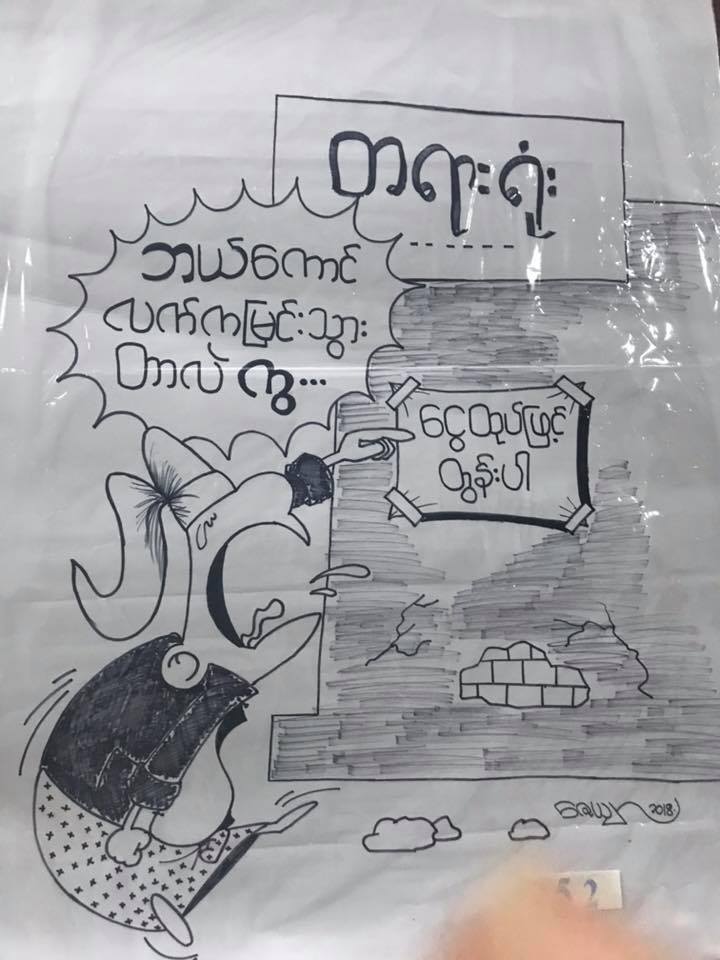 တရားရုံး
ဘယ်ကောင်
လက်ကမြင်းသွား
တာလဲ ကွ...
ငွေထုပ်ဖြင့်
တွန်းပါ
၂၀၁၈
52